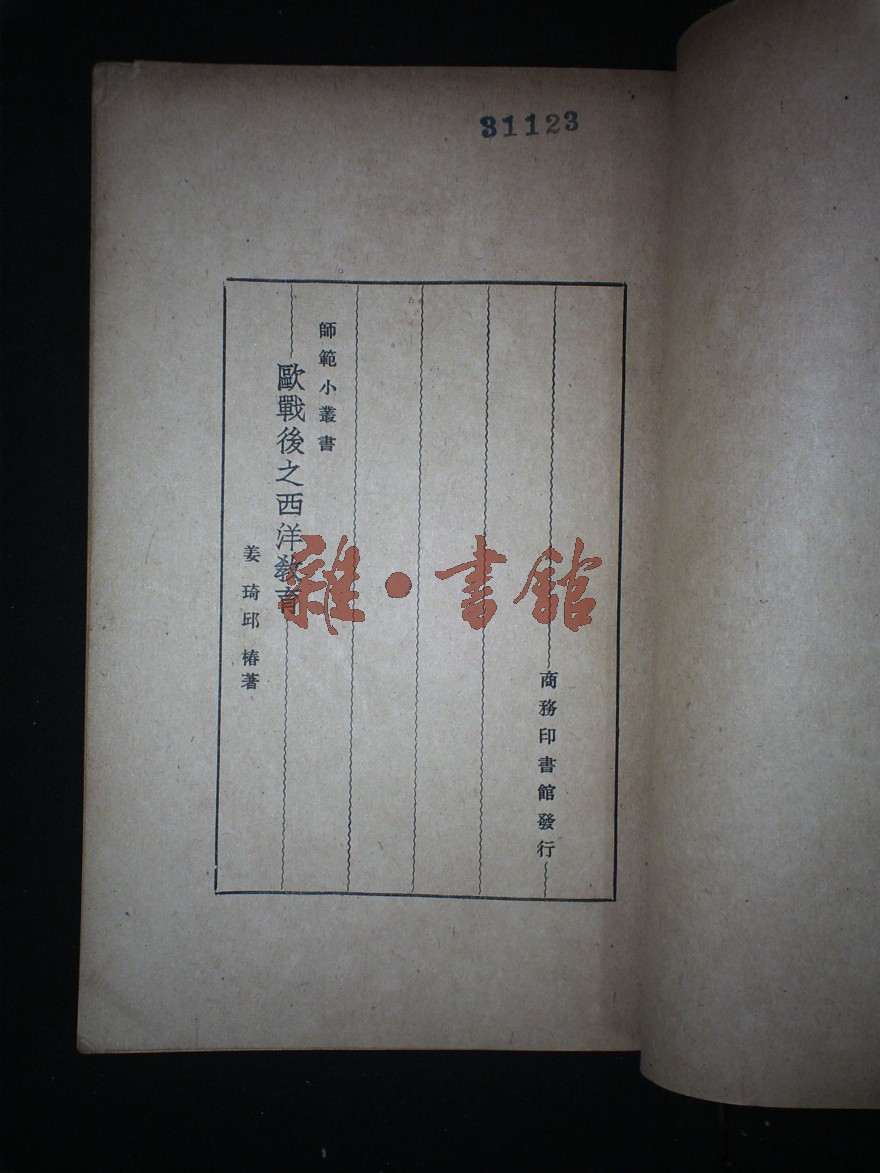 31123
師範小叢書
歐戰後之西洋教育
姜琦邱椿著
商務印書館發行
雜·書館